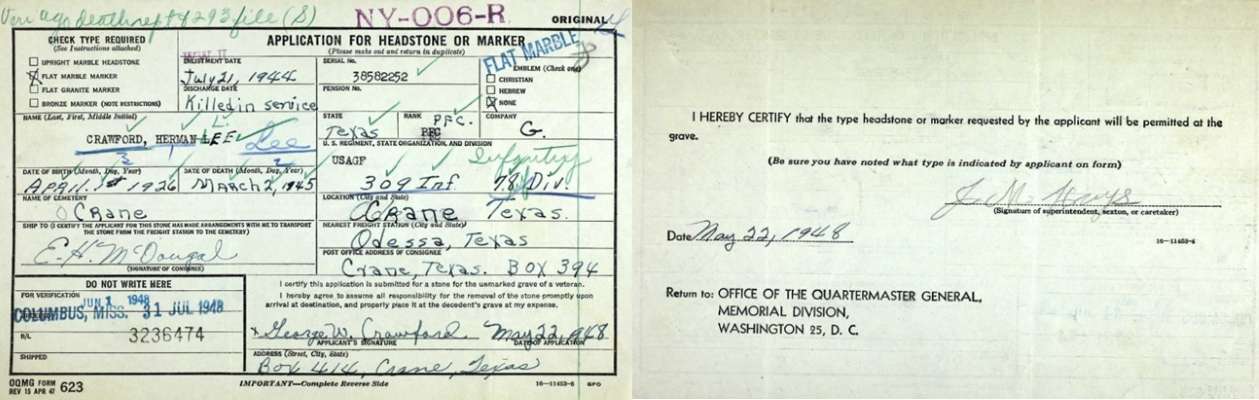 Ver ago death rept & 293 file (S)
NY-006-R
ORIGINAL
CHECK TYPE REQUIRED
(See Instructions attached)
UPRIGHT MARBLE HEADSTONE
FLAT MARBLE MARKER
FLAT GRANITE MARKER
BRONZE MARKER (NOTE RESTRICTIONS)
APPLICATION FOR HEADSTONE OR MARKER
(Please make out and return in duplicate)
ENLISTMENT DATE
July 21, 1944
DISCHARGE DATE
Killed in service
SERIAL No.
38582252
PENSION No.
FLAT MARBLE
EMBLEM (Check one)
CHRISTIAN
HEBREW
NONE
NAME (Last, First, Middle Initial)
CRAWFORD, HERMAN LEE Lee
STATE
Texas
RANK
PFC.
COMPANY
G.
U. S. REGIMENT, STATE ORGANIZATION, AND DIVISION
USAGF Infantry
309 Inf 78 Div.
DATE OF BIRTH (Month, Day, Year)
APRIL 1st 1926
DATE OF DEATH (Month, Day, Year)
March 2, 1945
NAME OF CEMETERY
Crane
LOCATION (City and State)
Crane Texas.
SHIP TO (I CERTIFY THE APPLICANT FOR THIS STONE HAS MADE ARRANGEMENTS WITH ME TO TRANSPORT
THE STONE FROM THE FREIGHT STATION TO THE CEMETERY)
E. H. McDougal
(SIGNATURE OF CONSIGNEE)
NEAREST FREIGHT STATION (City and State)
Odessa, Texas
POST OFFICE ADDRESS OF CONSIGNEE
Crane, Texas. BOX 394
DO NOT WRITE HERE
FOR VERIFICATION
JUN 1 1948
COLUMBUS, MISS. 31 JUL 1948
B/L
3236474
SHIPPED
I certify this application is submitted for a stone for the unmarked grave of a veteran.
I hereby agree to assume all responsibility for the removal of the stone promptly upon
arrival at destination, and properly place it at the decedent's grave at my expense.
x George W. Crawford May 22, 1948
APPLICANT'S SIGNATURE DATE OF APPLICATION
ADDRESS (Street, City, State)
Box 414, Crane, Texas
OQMG FORM
REV 15 APR 47 623
IMPORTANT—Complete Reverse Side
16—11453-6 GPO
I HEREBY CERTIFY that the type headstone or marker requested by the applicant will be permitted at the
grave.
(Be sure you have noted what type is indicated by applicant on form)
(Signature of superintendent, sexton, or caretaker)
Date May 22, 1948
16—11453-6
Return to: OFFICE OF THE QUARTERMASTER GENERAL,
MEMORIAL DIVISION,
WASHINGTON 25, D. C.